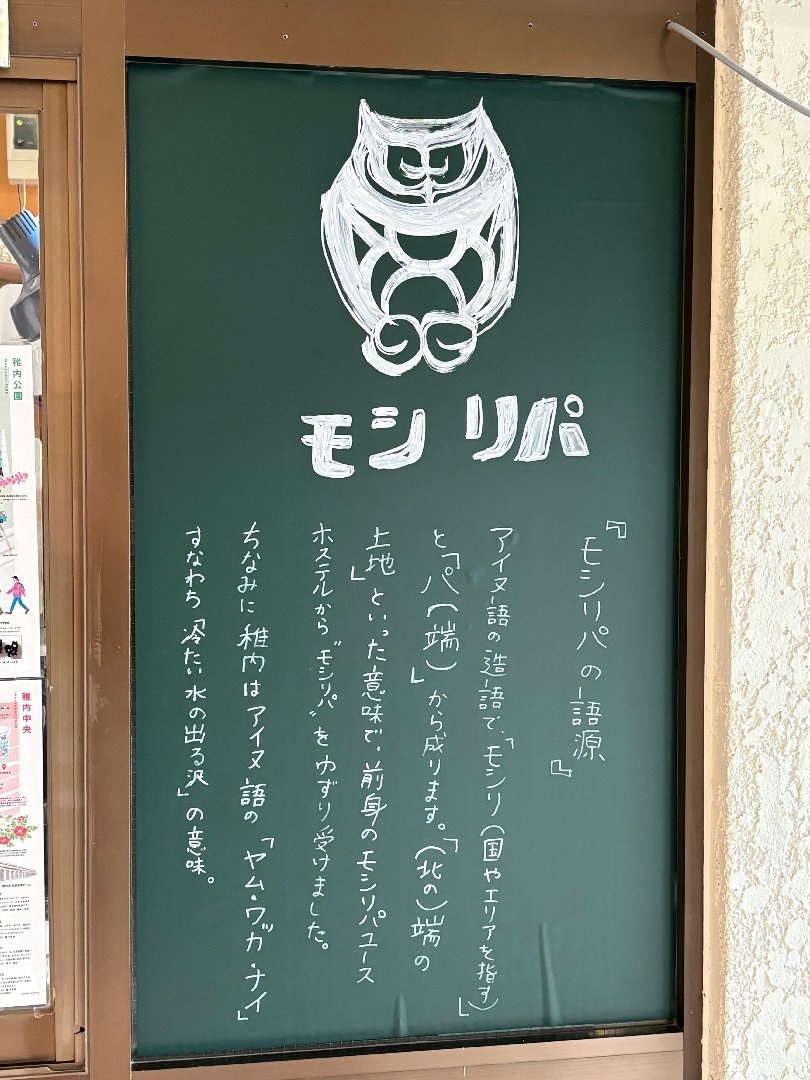 モシリパ
『モシリパの語源』
アイヌ語の造語で、「モシリ(国やエリアを指す)」
と「パ(端)」から成ります。「(北の)端の
土地」といった意味で、前身のモシリパユース
ホステルから〝モシリパ〟をゆずり受けました。
ちなみに稚内はアイヌ語の「ヤム・ワッカ・ナイ」
すなわち「冷たい水の出る沢」の意味。
稚内公園
稚内中央